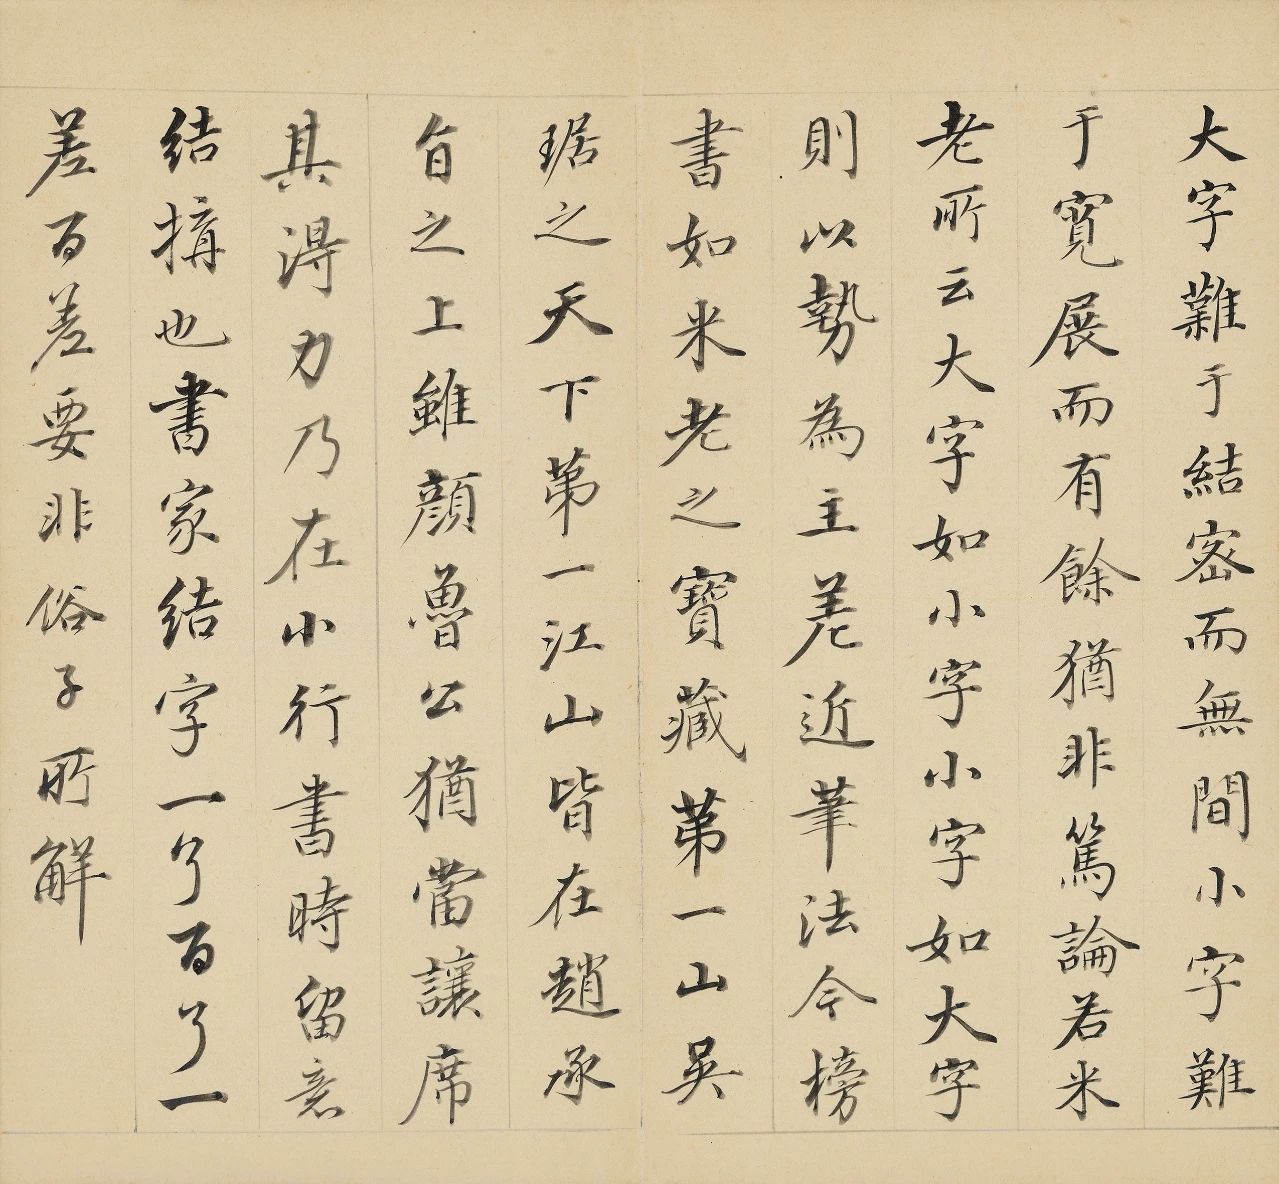 大字難于結密而無間小字難
于寬展而有餘猶非篤論若米
老所云大字如小字小字如大字
則以勢為主差近筆法今榜
書如米老之寶藏第一山吳
琚之天下第一江山皆在趙承
旨之上雖顏魯公猶當讓席
其得力乃在小行書時留意
结搆也書家结字一了百了一
差百差要非俗子所解